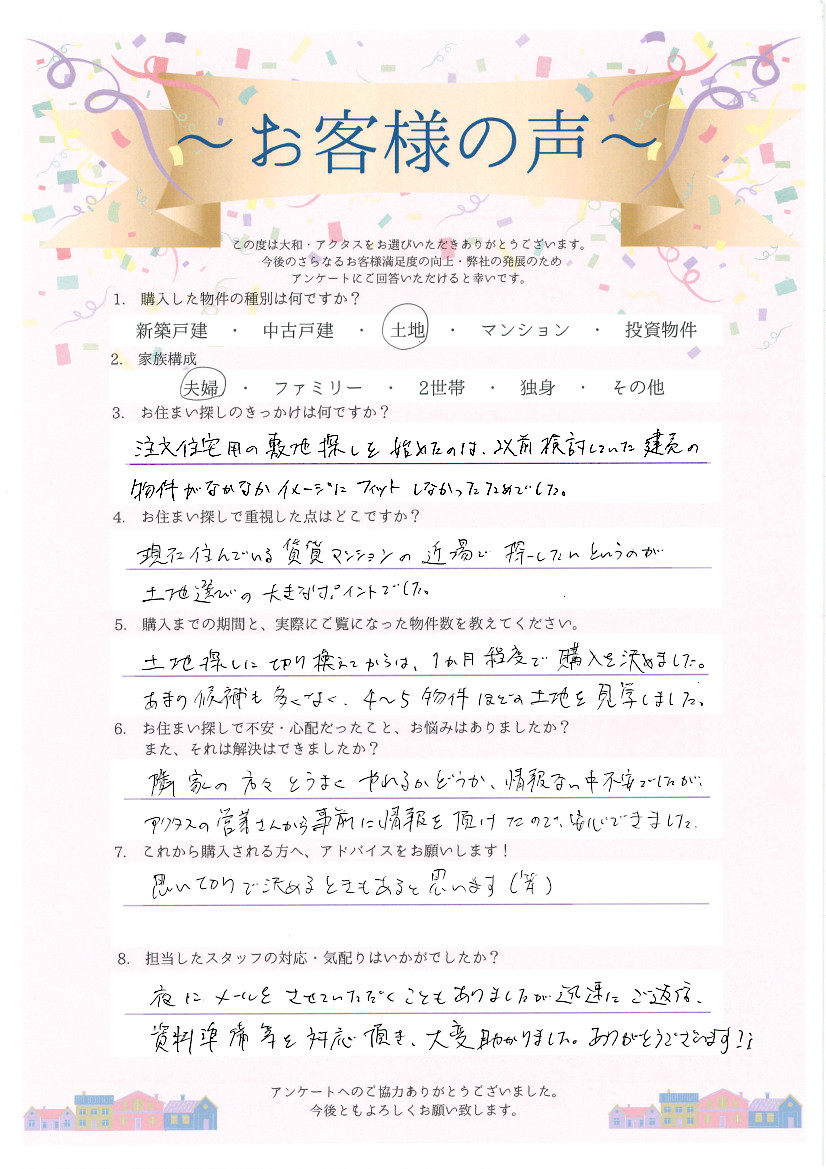 ～お客様の声～
この度は大和・アクタスをお選びいただきありがとうございます。
今後のさらなるお客様満足度の向上・弊社の発展のため
アンケートにご回答いただけると幸いです。
1. 購入した物件の種別は何ですか？
新築戸建 ・ 中古戸建 ・ 土地 ・ マンション ・ 投資物件
2. 家族構成
夫婦 ・ ファミリー ・ 2世帯 ・ 独身 ・ その他
3. お住まい探しのきっかけは何ですか？
注文住宅用の敷地探しを始めたのは、以前検討していた建売の
物件がなかなかイメージにフィットしなかったためでした。
4. お住まい探しで重視した点はどこですか？
現在住んでいる賃貸マンションの近場で探したいというのが
土地選びの大きなポイントでした。
5. 購入までの期間と、実際にご覧になった物件数を教えてください。
土地探しに切り換えてからは、1か月程度で購入を決めました。
あまり候補も多くなく、4～5物件ほどの土地を見学しました。
6. お住まい探しで不安・心配だったこと、お悩みはありましたか？
また、それは解決はできましたか？
隣家の方々とうまくやれるかどうか、情報ない中不安でしたが、
アクタスの営業さんから事前に情報を頂けたので、安心できました。
7. これから購入される方へ、アドバイスをお願いします！
思い切りで決めるときもあると思います（笑）
8. 担当したスタッフの対応・気配りはいかがでしたか？
夜にメールをさせていただくこともありましたが迅速にご返信、
資料準備等を対応頂き、大変助かりました。ありがとうございます！！
アンケートへのご協力ありがとうございました。
今後ともよろしくお願い致します。